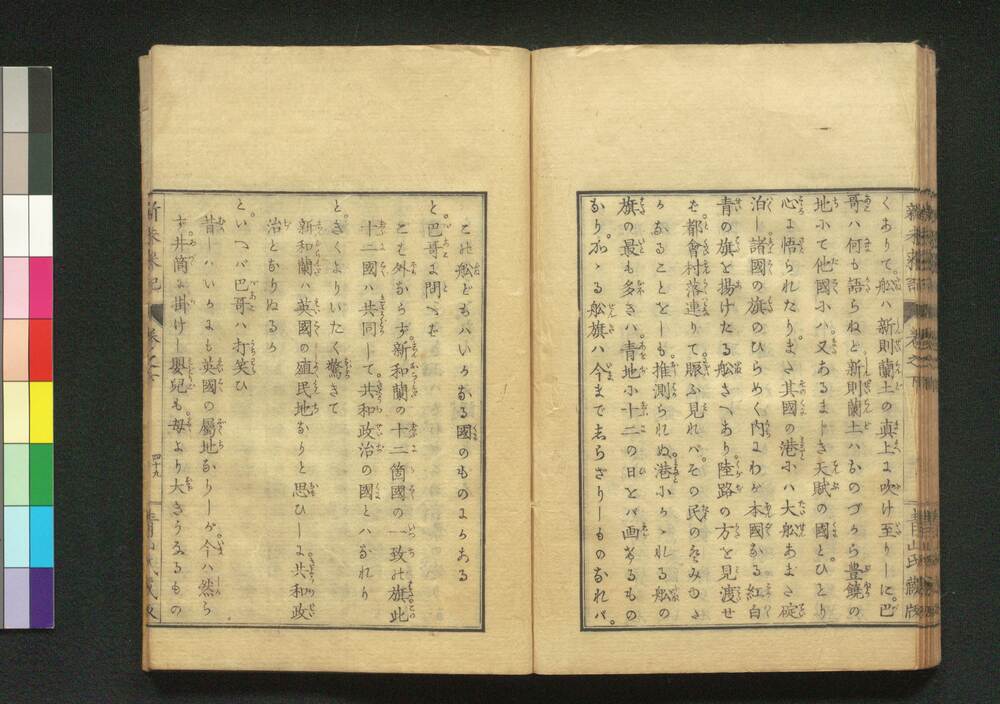 くありて。舩ハ新則蘭土の真上に吹け至りしに。巴
哥ハ何も語らねど新則蘭土ハおのづから豊饒の
地にて他國にハ又あるまじき天賦の國と。ひとり
心に悟られたり。まさ其國の港にハ大舩あまさ碇
泊し諸國の旗のひらめく内にわが本國なる紅白
青の旗を揚げたる舩さへあり陸路の方を見渡せ
ば。都會村落連りて賑ふ見れバ。その民の
なることをしも推測られぬ。港にかゝれる舩の
旗の最も多きハ。青地に十二の日をバ画るもの
なり。かゝる舩旗ハ今まで志らざりしものなれバ。
この舩どもハいかなる國のものにかある
と。巴哥に問へば
こも外ならず。新和蘭の十二箇國の一致の旗。此
十二國ハ共同して。共和政治の國とハなれり
と。きくよりいたく驚きて
新和蘭ハ英國の殖民地なりと思ひしに。共和政
治となりぬるか
と。いへバ巴哥ハ打笑ひ
昔しハいかにも英國の屬地なりしが。今ハ然ら
ず。井筒に掛けし嬰兒も。母より大きうなるもの
新未来記
巻之下
四十九
青山氏蔵版